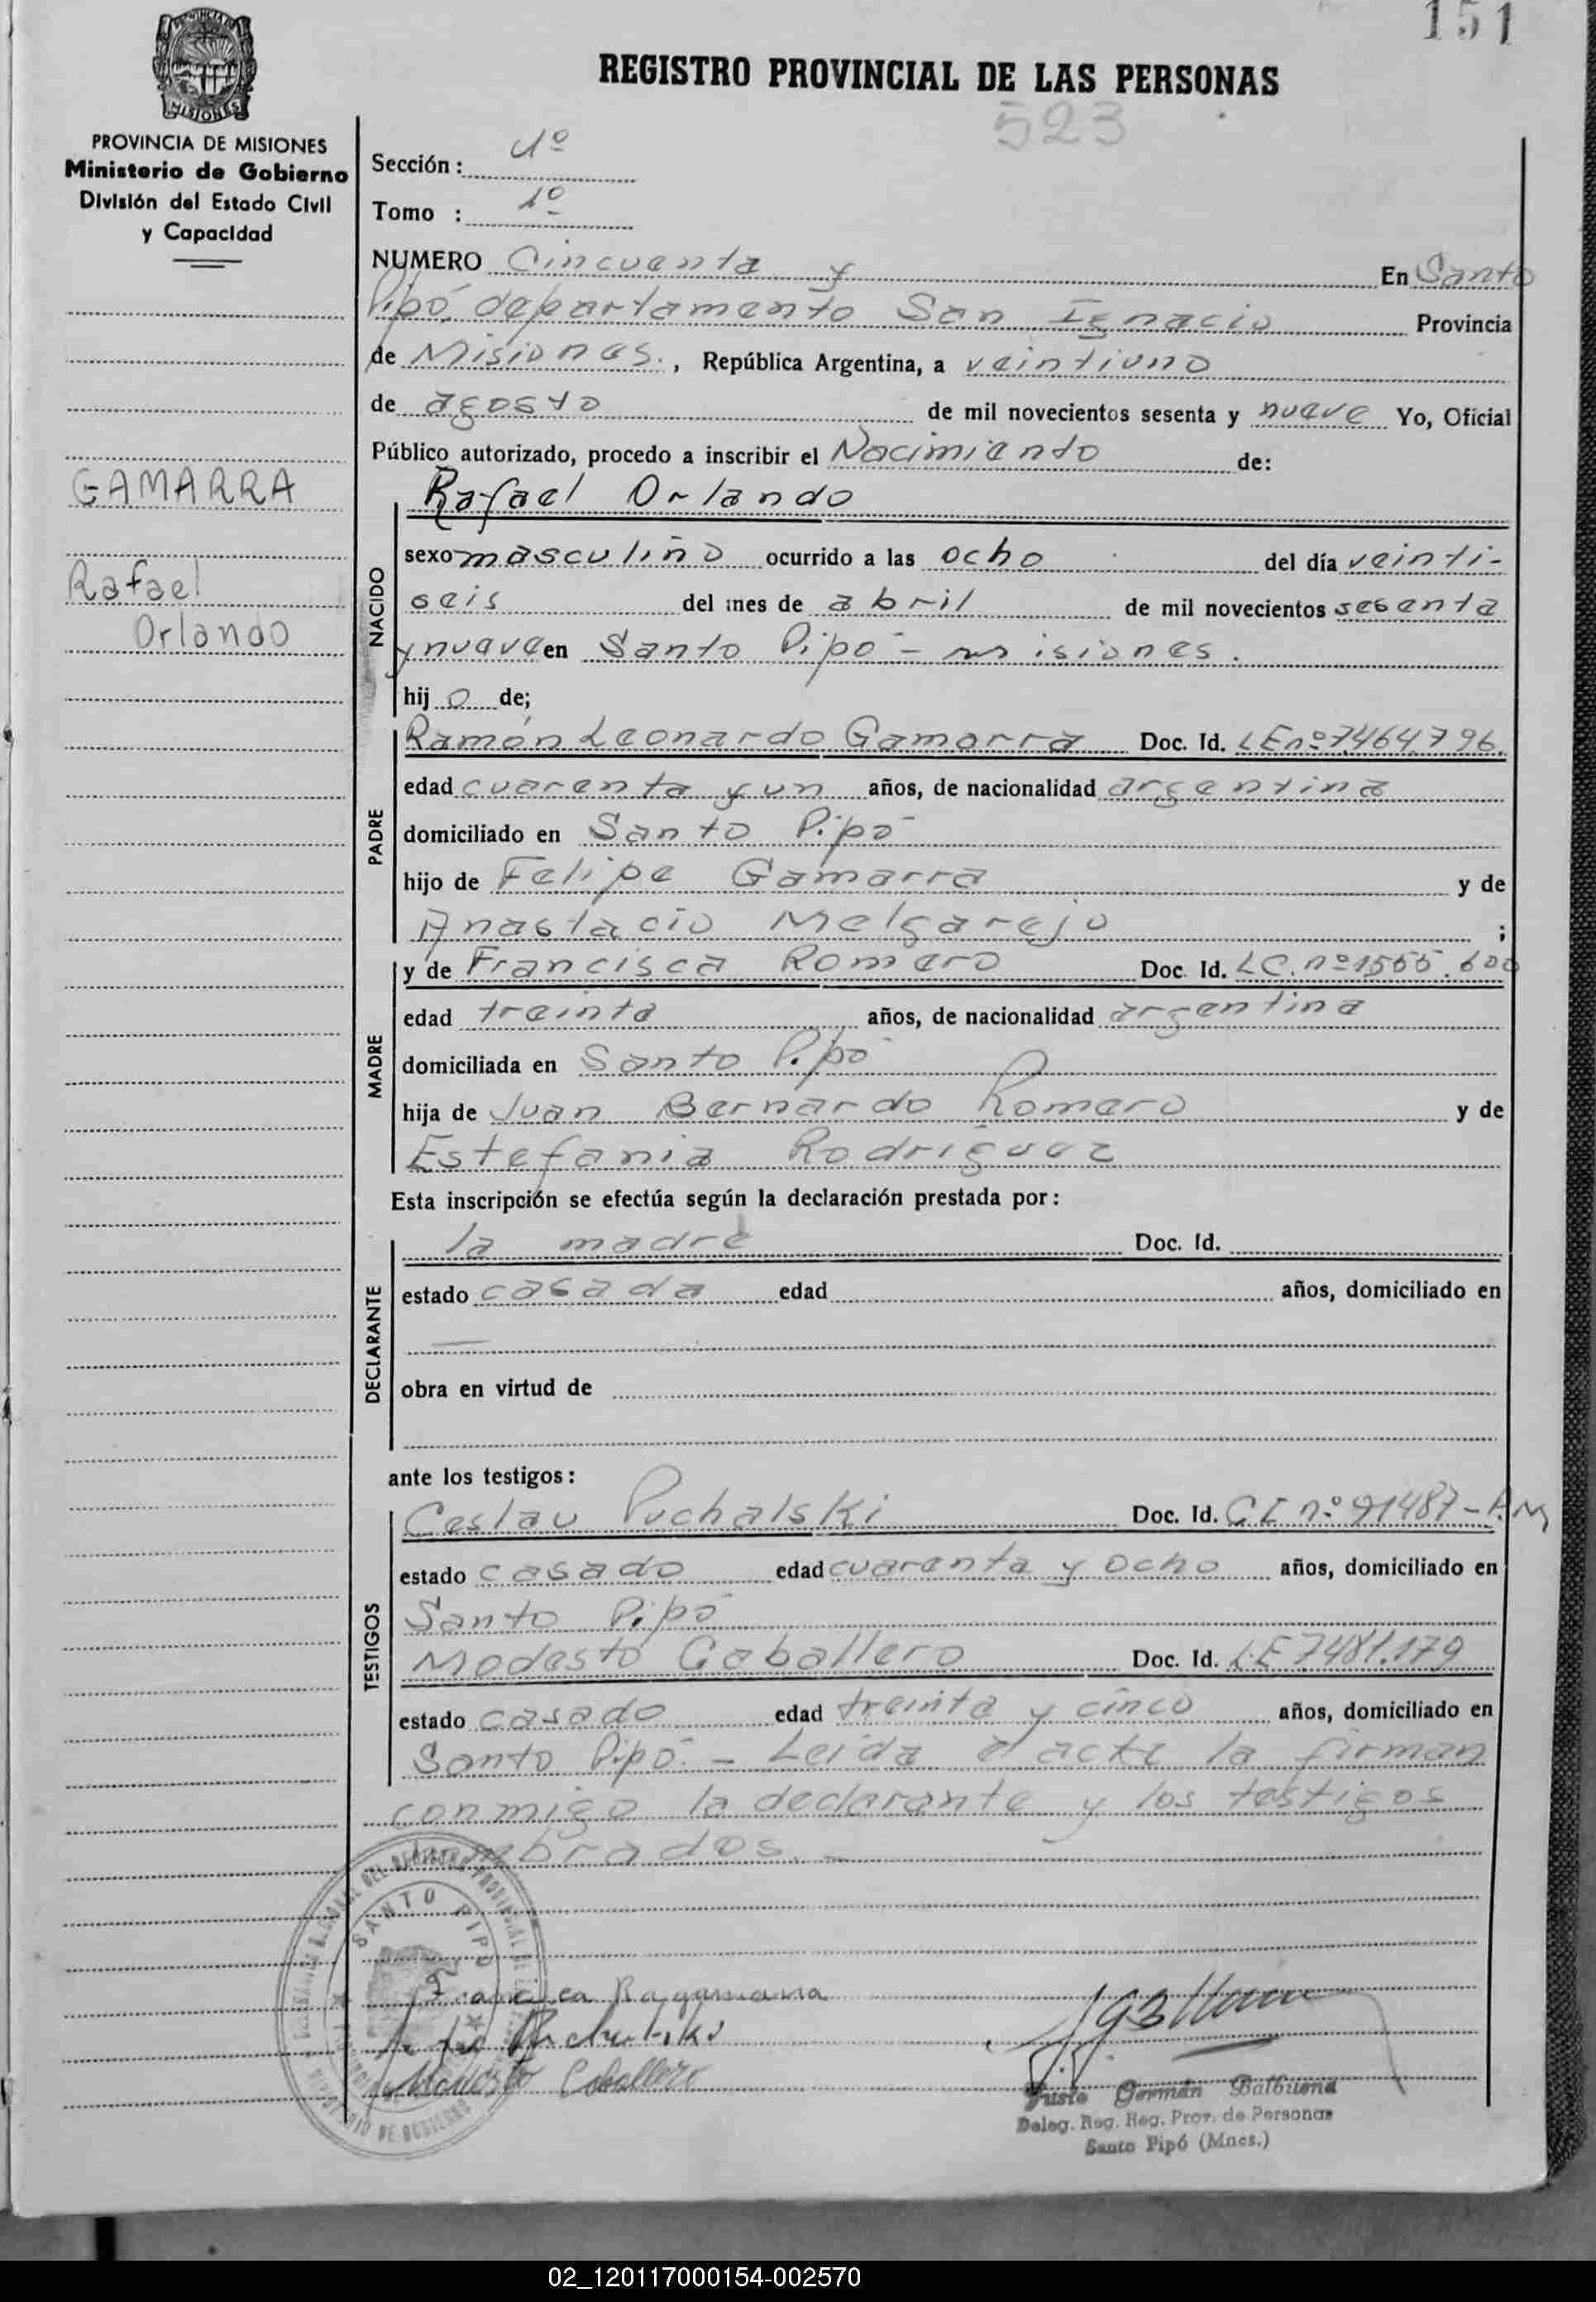 151
REGISTRO PROVINCIAL DE LAS PERSONAS
523
PROVINCIA DE MISIONES
MISIONES
PROVINCIA DE MISIONES
Ministerio de Gobierno
División del Estado Civil
y Capacidad
GAMARRA
Rafael
Orlando
Sección: 1º
Tomo : 1º
NUMERO Cincuenta y En Santo
Pipó, departamento San Ignacio Provincia
de Misiones., República Argentina, a veintiuno
de agosto de mil novecientos sesenta y nueve Yo, Oficial
Público autorizado, procedo a inscribir el Nacimiento de:
Rafael Orlando
NACIDO
sexo masculino ocurrido a las ocho del día veinti-
seis del mes de abril de mil novecientos sesenta
y nueve en Santo Pipó - misiones.
hij o de;
PADRE
Ramón Leonardo Gamarra Doc. Id. LE nº 7.464.796.
edad cuarenta y un años, de nacionalidad argentina
domiciliado en Santo Pipó
hijo de Felipe Gamarra y de
Anastacio Melgarejo ;
MADRE
y de Francisca Romero Doc. Id. LC. nº 1555.600
edad treinta años, de nacionalidad argentina
domiciliada en Santo Pipó
hija de Juan Bernardo Romero y de
Estefania Rodriguez
Esta inscripción se efectúa según la declaración prestada por:
DECLARANTE
la madre Doc. Id.
estado casada edad años, domiciliado en
—
obra en virtud de
ante los testigos:
TESTIGOS
Ceslau Puchalski Doc. Id. C I nº 91487-
estado casado edad cuarenta y ocho años, domiciliado en
Santo Pipó
Modesto Caballero Doc. Id. L.E 7.481.179
estado casado edad treinta y cinco años, domiciliado en
Santo Pipó. - Leida el acta la firman
conmigo la declarante y los testigos
nombrados. -
SANTO PIPO
Francisca R
Puchalski
Modesto Caballero
Justo Germán Balbuena
Deleg. Reg. Reg. Prov. de Personas
Santo Pipó (Mnes.)
02_120117000154-002570